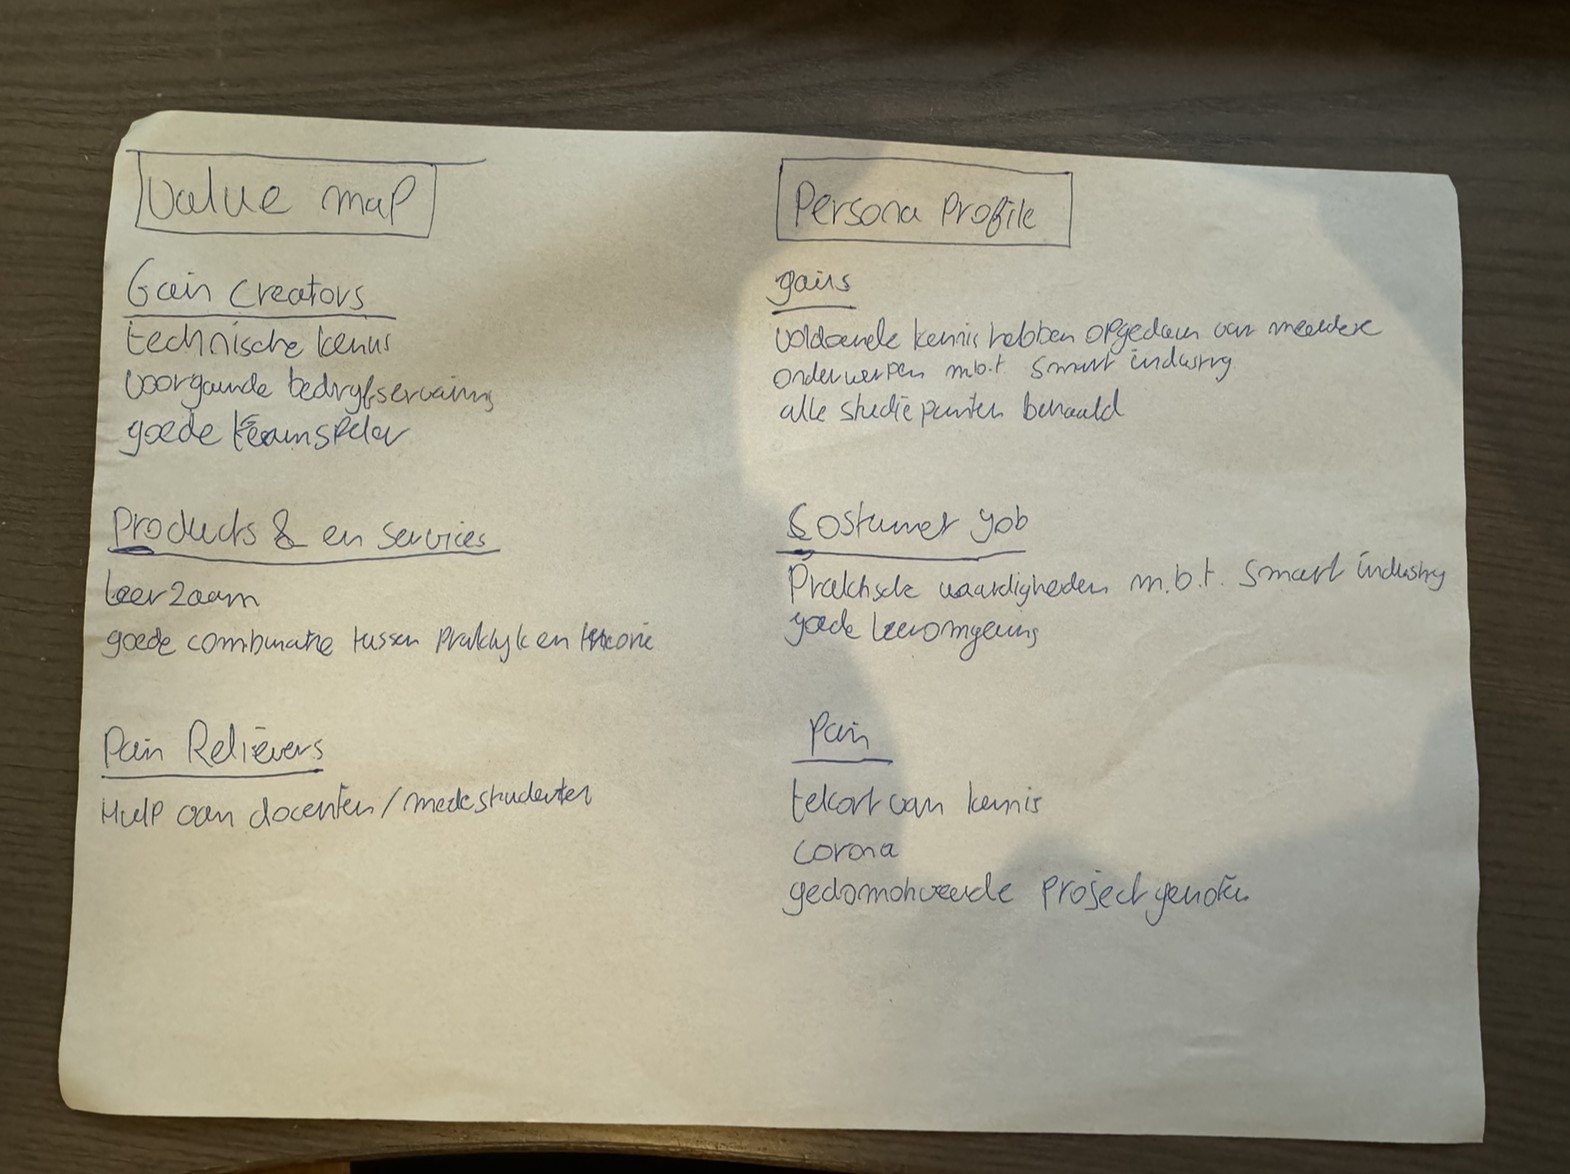 Value map
Gain Creators
technische kennis
voorgaande bedrijfservaring
goede teamspeler
Products & en services
Leerzaam
goede combinatie tussen praktijk en theorie
Pain Relievers
Hulp van docenten/medestudenten
Persona Profile
gains
voldoende kennis hebben opgedaan van meerdere
onderwerpen m.b.t smart industry
alle studiepunten behaald
Costumer job
Praktische vaardigheden m.b.t. smart industry
goede leeromgeving
Pain
tekort van kennis
corona
projectgenoten